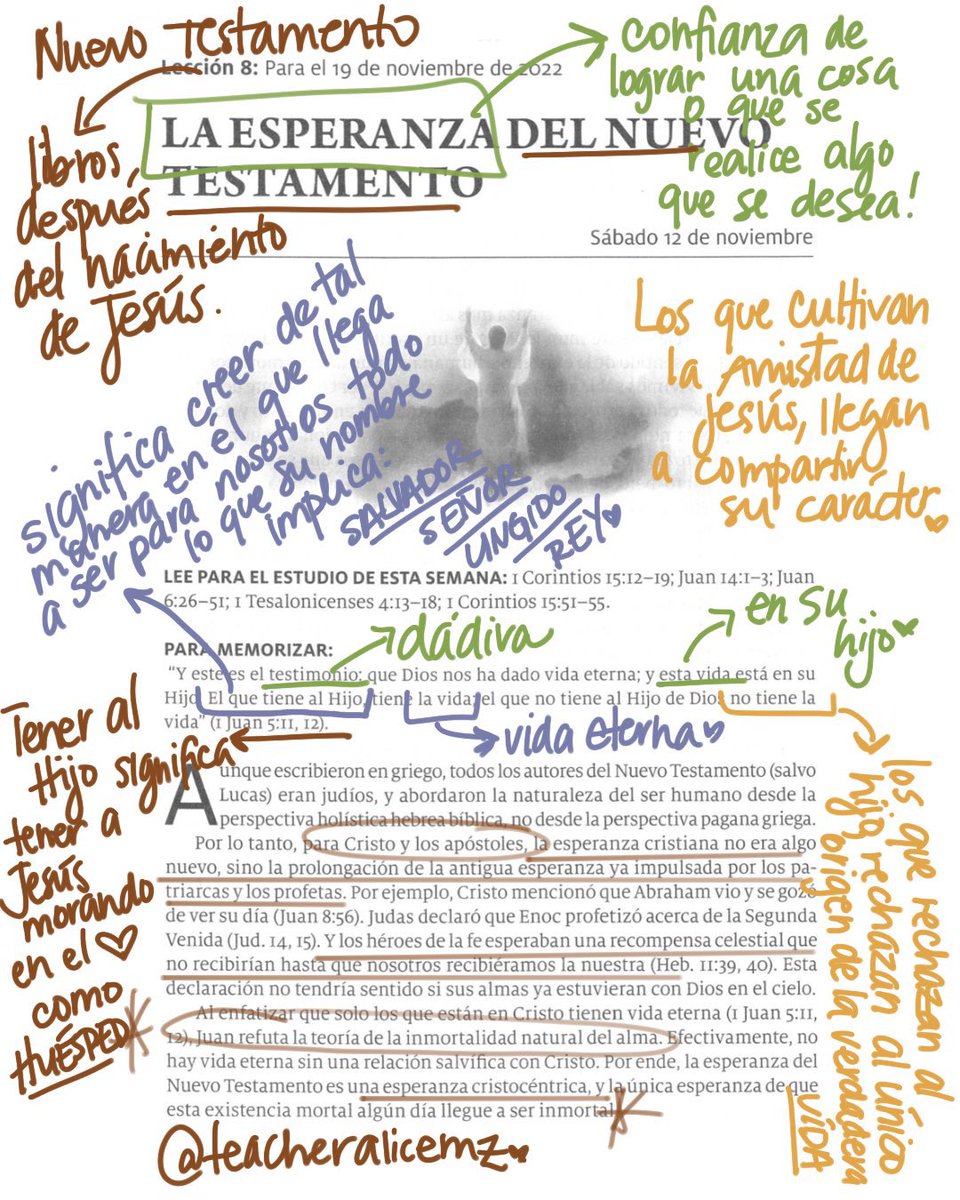 Nuevo Testamento
Lección 8: Para el 19 de noviembre de 2022
LA ESPERANZA DEL NUEVO
TESTAMENTO
Sábado 12 de noviembre
confianza de
lograr una cosa
o que se
realice algo
que se desea!
libros
después
del nacimiento
de Jesús.
significa creer de tal
manera en él que llega
a ser para nosotros todo
lo que su nombre
implica:
SALVADOR
SEÑOR
UNGIDO
REY
Los que cultivan
la Amistad de
Jesús, llegan
a compartir
su carácter
LEE PARA EL ESTUDIO DE ESTA SEMANA: 1 Corintios 15:12–19; Juan 14:1–3; Juan
6:26–51; 1 Tesalonicenses 4:13–18; 1 Corintios 15:51–55.
dádiva
en su
hijo
PARA MEMORIZAR:
“Y este es el testimonio: que Dios nos ha dado vida eterna; y esta vida está en su
Hijo. El que tiene al Hijo, tiene la vida; el que no tiene al Hijo de Dios no tiene la
vida” (1 Juan 5:11, 12).
vida eterna
Tener al
Hijo significa
tener a
Jesús
morando
en el ♡
como
HUÉSPED
los que rechazan al
hijo, rechazan al único
origen de la verdadera
VIDA
Aunque escribieron en griego, todos los autores del Nuevo Testamento (salvo
Lucas) eran judíos, y abordaron la naturaleza del ser humano desde la
perspectiva holística hebrea bíblica, no desde la perspectiva pagana griega.
Por lo tanto, para Cristo y los apóstoles, la esperanza cristiana no era algo
nuevo, sino la prolongación de la antigua esperanza ya impulsada por los pa-
triarcas y los profetas. Por ejemplo, Cristo mencionó que Abraham vio y se gozó
de ver su día (Juan 8:56). Judas declaró que Enoc profetizó acerca de la Segunda
Venida (Jud. 14, 15). Y los héroes de la fe esperaban una recompensa celestial que
no recibirían hasta que nosotros recibiéramos la nuestra (Heb. 11:39, 40). Esta
declaración no tendría sentido si sus almas ya estuvieran con Dios en el cielo.
Al enfatizar que solo los que están en Cristo tienen vida eterna (1 Juan 5:11,
12), Juan refuta la teoría de la inmortalidad natural del alma. Efectivamente, no
hay vida eterna sin una relación salvífica con Cristo. Por ende, la esperanza del
Nuevo Testamento es una esperanza cristocéntrica, y la única esperanza de que
esta existencia mortal algún día llegue a ser inmortal.
@teacheralicemz